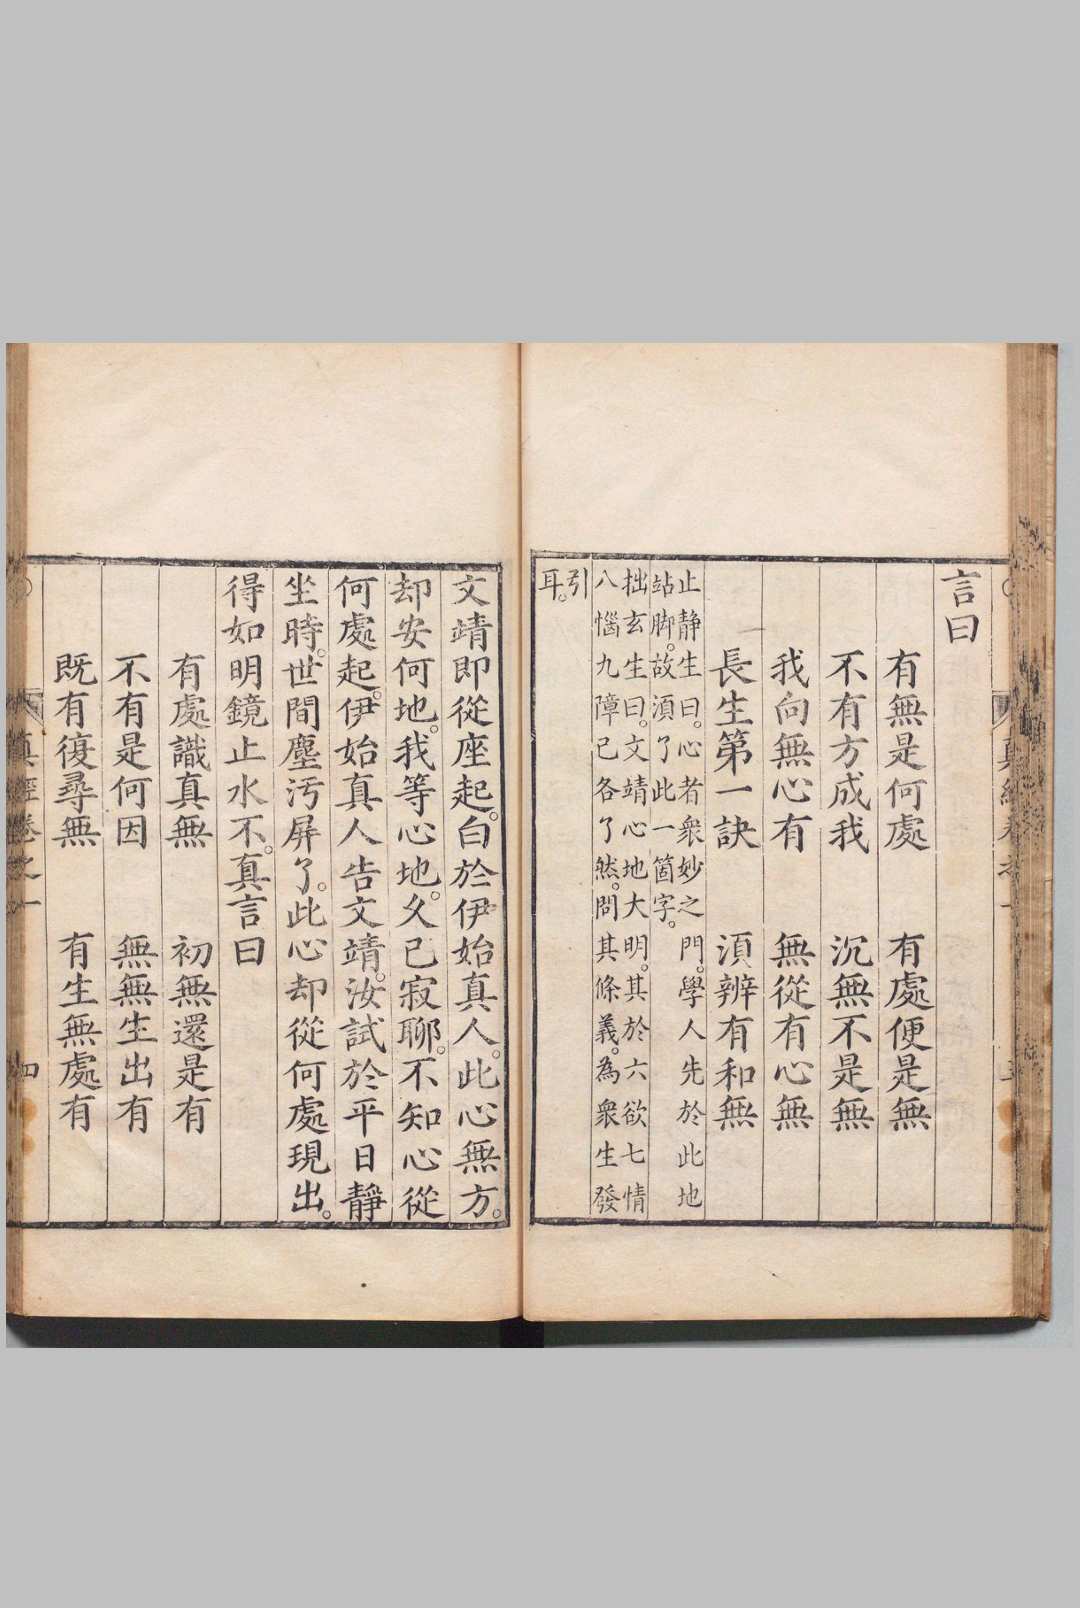 言曰
有無是何處　有處便是無
不有方成我　沉無不是無
我向無心有　無從有心無
長生第一訣　須辨有和無
止静生曰。心者衆妙之門。學人先於此地
站脚。故須了此一箇字。
拙玄生曰。文靖心地大明。其於六欲七情
八惱九障已各了然。問其條義。為衆生發
引
耳。
文靖即從座起。白於伊始真人。此心無方。
却安何地。我等心地。久已寂聊。不知心從
何處起。伊始真人告文靖。汝試於平日靜
坐時。世間塵污屏了。此心却從何處現出。
得如明鏡止水不。真言曰
有處識真無　初無還是有
不有是何因　無無生出有
既有復尋無　有生無處有
真經卷之一
四